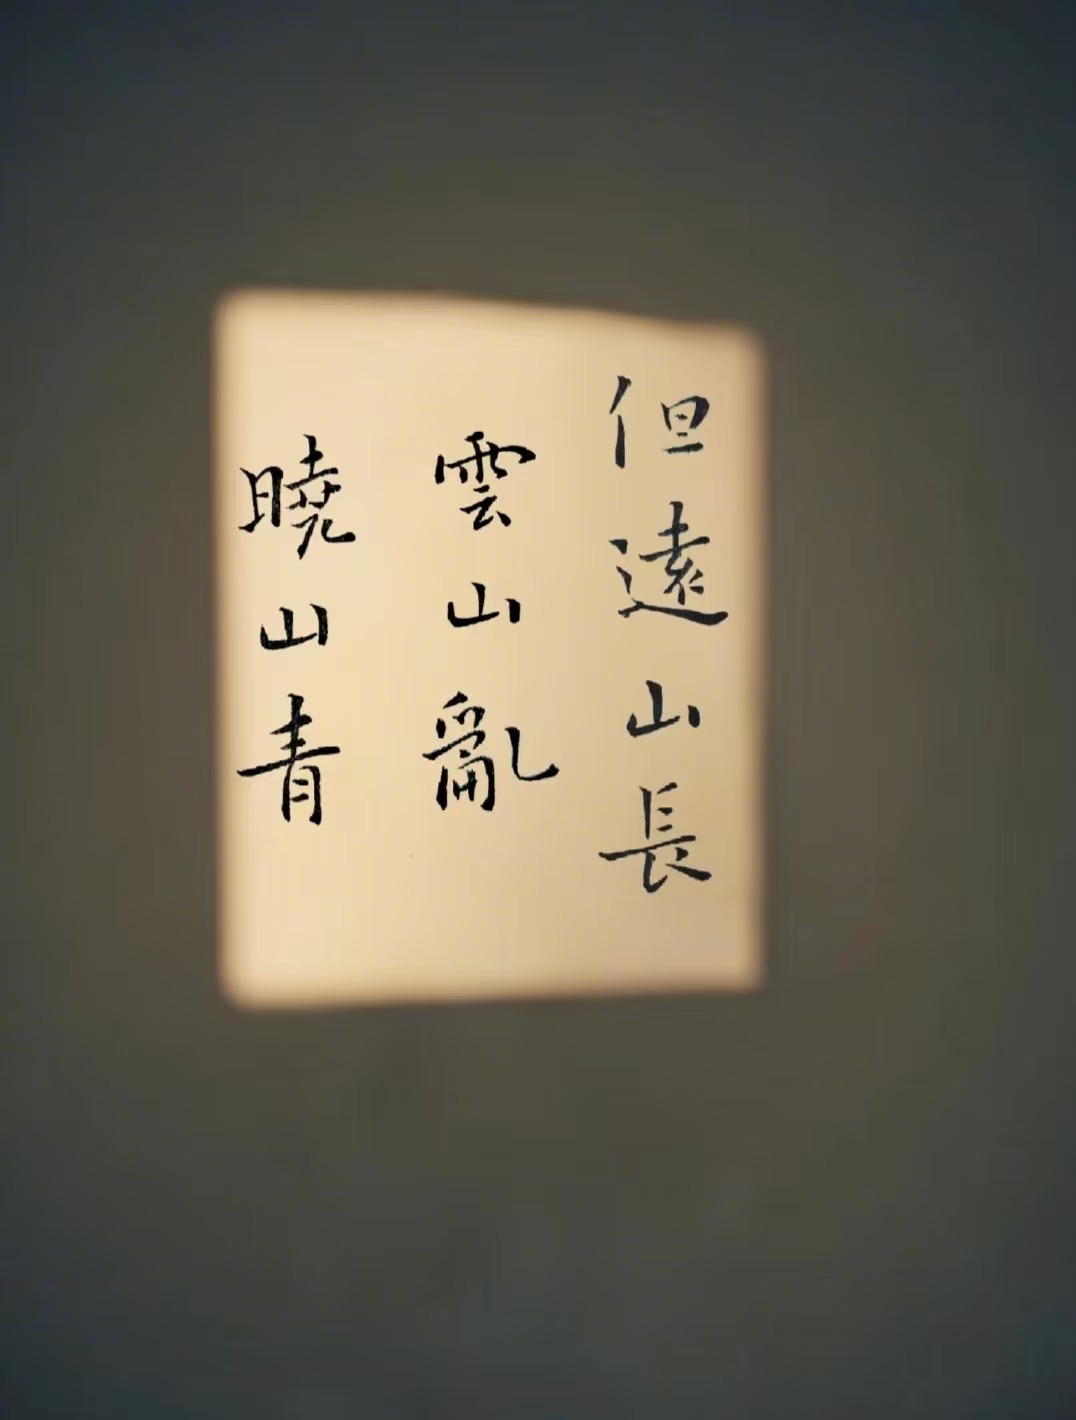 但遠山長
雲山亂
曉山青